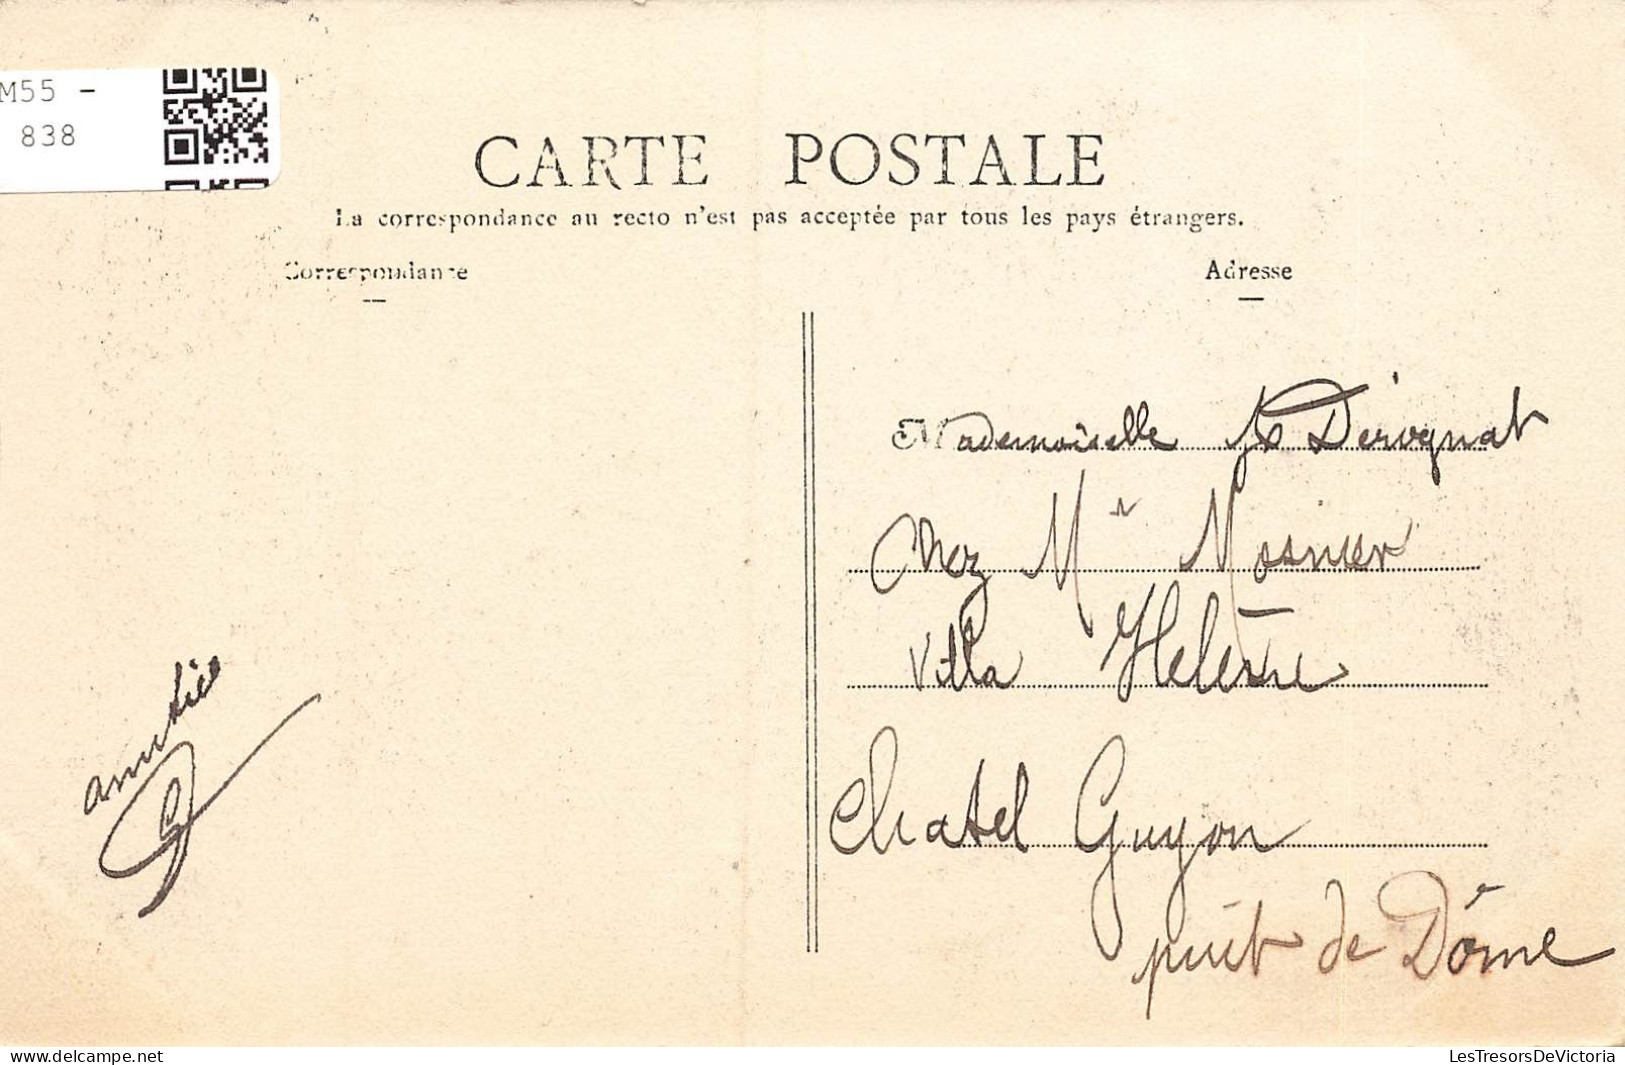 M55 -
838
CARTE POSTALE
La correspondance au recto n'est pas acceptée par tous les pays étrangers.
Correspondance
Adresse
Mademoiselle Dérognat
Chez Mr Mosnier
Villa Helène
Chatel Guyon
puit de Dôme
amitiés
delcampe.net
LesTresorsDeVictoria